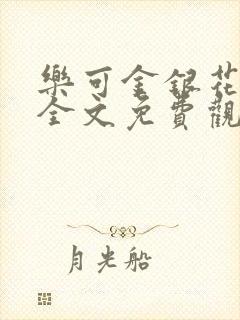 樂可金銀花
全文免費觀
月光船